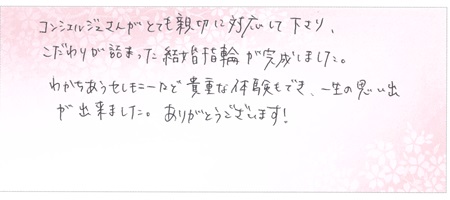 コンシェルジュさんがとても親切に対応して下さり、
こだわりが詰まった結婚指輪が完成しました。
わかちあうセレモニーなど貴重な体験もでき、一生の思い出
が出来ました。ありがとうございます!